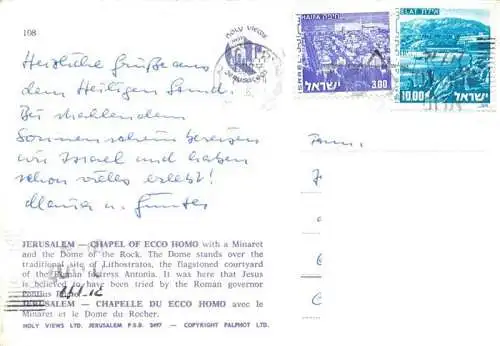 108
HOLY VIEWS
JERUSALEM
HAIFA חיפה
ISRAEL
3.00
ישראל
ELAT אילת
10.00
ישראל
ISRAEL
Herzliche Grüße aus
dem Heiligen Land.
Bei strahlendem
Sonnenschein bereisen
wir Israel und haben
schon vieles erlebt!
u. Günter
Fam.
JERUSALEM – CHAPEL OF ECCO HOMO with a Minaret
and the Dome of the Rock. The Dome stands over the
traditional site of Lithostratos, the flagstoned courtyard
of the Roman fortress Antonia. It was here that Jesus
is believed to have been tried by the Roman governor
Pontius
JERUSALEM – CHAPELLE DU ECCO HOMO avec le
Minaret et le Dome du Rocher.
HOLY VIEWS LTD. JERUSALEM P.O.B. – COPYRIGHT PALPHOT LTD.